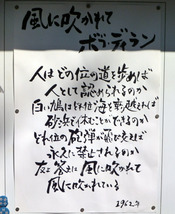 風に吹かれて
ボブ・ディラン
人はどの位の道を歩めば
人として認められるのか
白い鳩はどれ位海を乗り越えれば
砂浜で休むことができるのか
どれ位の砲弾が飛び交えば
永久に禁止されるのか
友よ 答えは 風に吹かれて
風に吹かれている
1962年